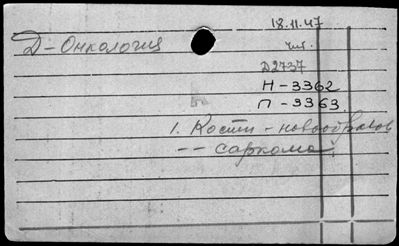 18.11.47
Д-Онкология
чит.
Д2737
Н-3362
П-3363
1. Кости - новообразов
-- саркома